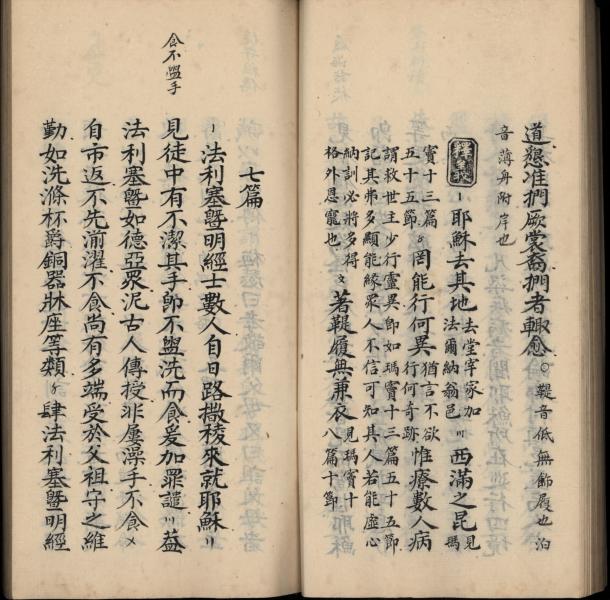 道懇准捫厥裳裔捫者輙愈。鞮音低無飾履也泊
音薄舟附岸也
〡耶穌去其地
去堂宰家加
法爾納翁邑
〢西滿之昆
見
瑪
竇十三篇
五十五節
〥罔能行何異
猶言不欲
行何奇跡
惟療數人病
謂救世主少行靈異即如瑪竇十三篇五十五節
記其弗多顯能緣眾人不信可知其人若能虛心
納訓必將多得
格外恩寵也
〤著鞮履無兼衣
見瑪竇十
八篇十節
食不盥手
七篇
〡法利塞曁明經士數人自日路撒稜來就耶穌〢
見徒中有不潔其手即不盥洗而食爰加罪譴〣益
法利塞曁如德亞眾泥古人傳授非屢澡手不食〤
自市返不先湔濯不食尚有多端受於父祖守之維
勤如洗滌杯爵銅器牀座等類〥肆法利塞曁明經